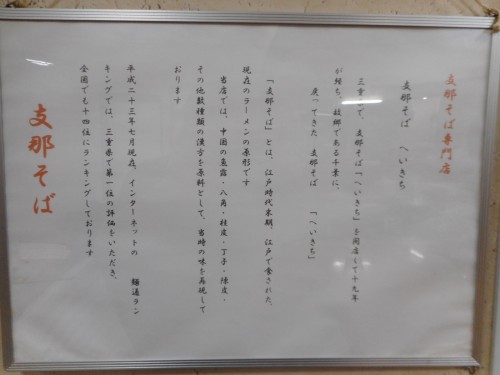 支那そば専門店
支那そば　へいきち
三重県で、支那そば「へいきち」を開店して十九年
が経ち、故郷である千葉に、
戻ってきた　支那そば　「へいきち」
「支那そば」とは、江戸時代末期、江戸で食された、
現在のラーメンの原形です
当店では、中国の茴香・八角・桂皮・丁子・陳皮・
その他数種類の漢方を原料として、当時の味を再現して
おります
平成二十三年七月現在、インターネットの　麺通ラン
キングでは、三重県で第一位の評価をいただき、
全国でも十四位にランキングしております
支那そば